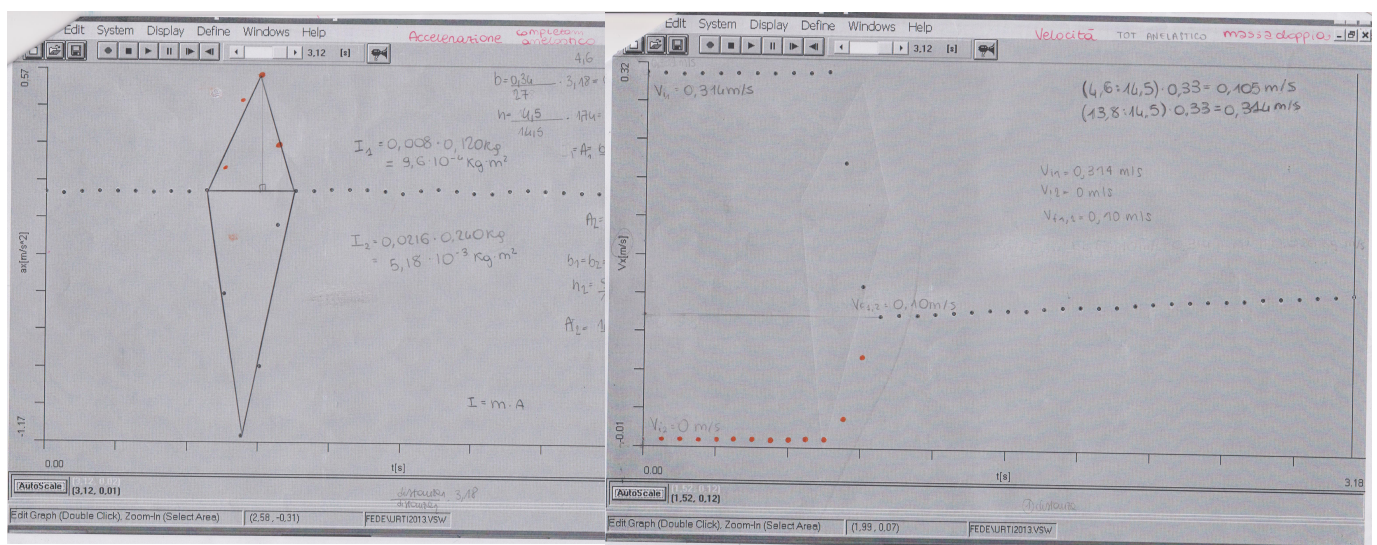 Edit System Display Define Windows Help
Accelerazione completam anelastico
3,12 [s]
4,6
0.57
b = 0,34 / 27 · 3,18 =
h = 4,5 / 14,5 · 174 =
I1 = 0,008 · 0,120Kg
= 9,6 · 10^-4 Kg · m²
ax[m/s^2]
A2 =
I2 = 0,0216 · 0,240Kg
= 5,18 · 10^-3 Kg · m²
b1 = b2 =
h2 =
A2 =
I = m · A
-1.17
0.00
t[s]
AutoScale
(3,12, 0,01)
distanza · 3,18
distanza
Edit Graph (Double Click), Zoom-In (Select Area) (2,58 , -0,31) FEDE\URTI2013.VSW
Edit System Display Define Windows Help
Velocità TOT ANELATTICO massa doppia
3,12 [s]
0.32
Vi1 = 0,314m/s
(4,6:14,5) · 0,33 = 0,105 m/s
(13,8:14,5) · 0,33 = 0,314 m/s
Vi1 = 0,314 m/s
Vi2 = 0 m/s
Vf1,2 = 0,10 m/s
Vx[m/s]
= 0,10m/s
Vi2 = 0 m/s
-0.01
0.00
t[s]
3.18
AutoScale
(1,52, 0,12)
(1,52, 0,12)
distanza
Edit Graph (Double Click), Zoom-In (Select Area) (1,99 , 0,07) FEDE\URTI2013.VSW